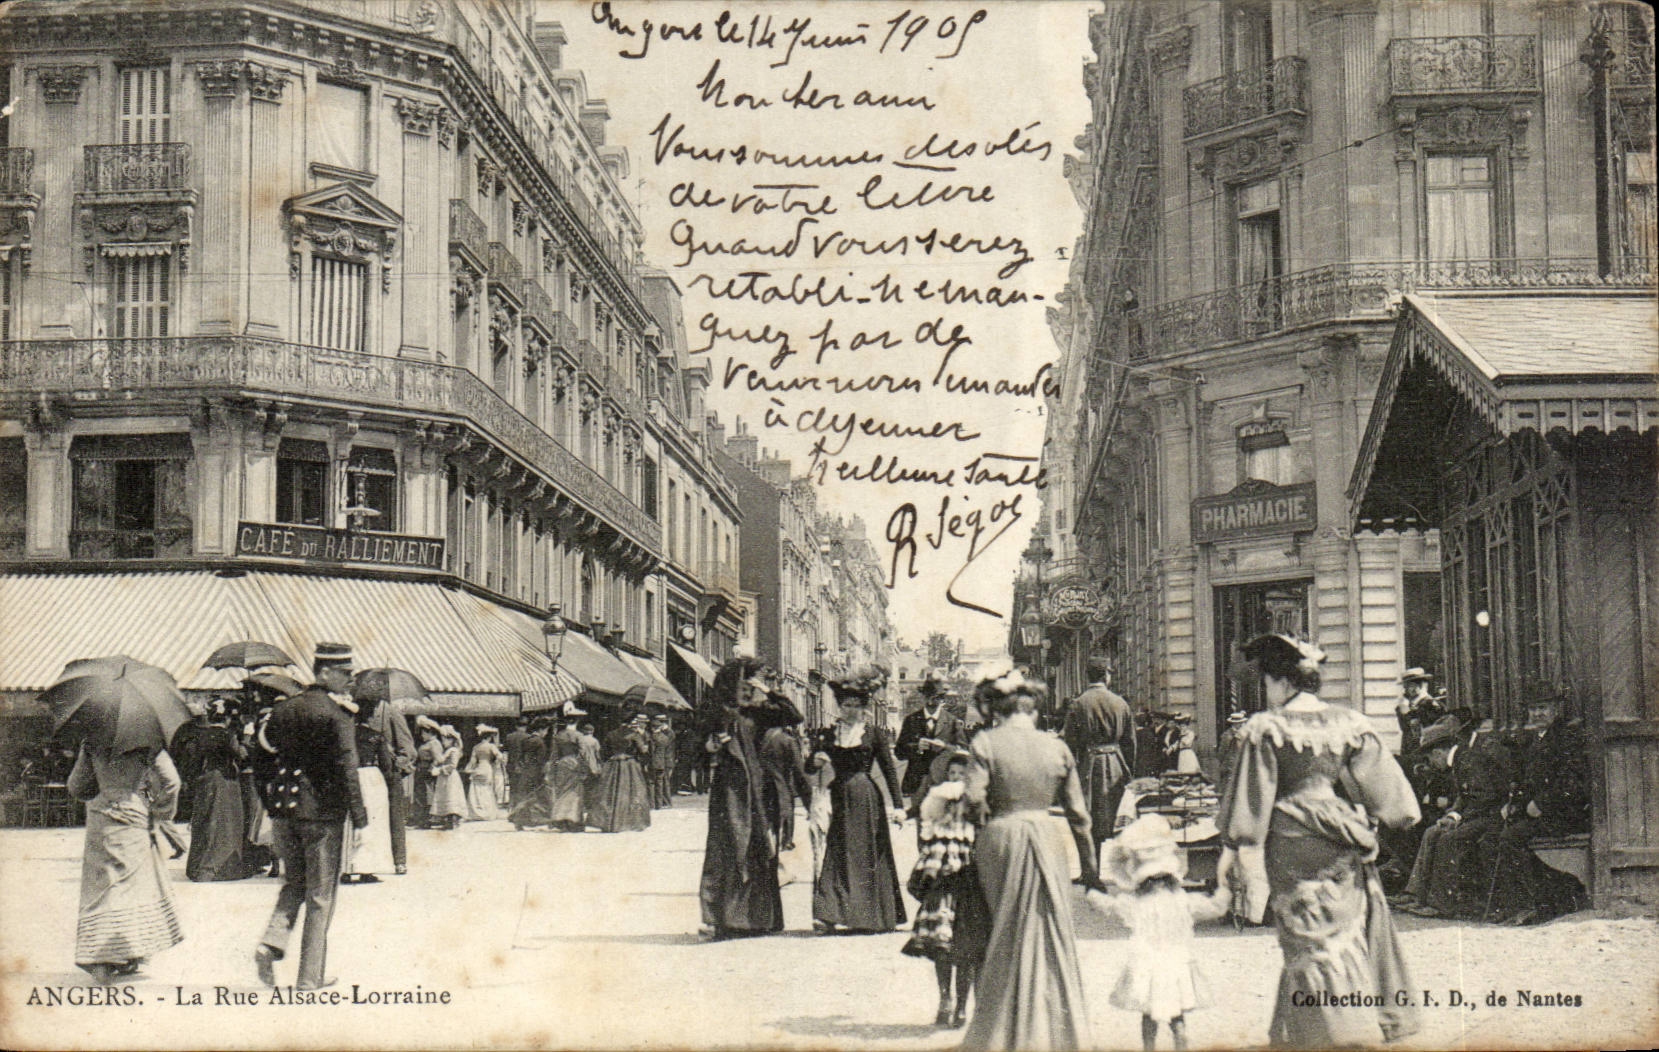 Angers le 14 Juin 1905
Mon cher ami
Nous sommes desolés
de votre lettre
Quand vous serez
retabli - ne man-
quez pas de
venir nous demander
à dejeuner
Meilleure santé
R Ségot
CAFÉ DU RALLIEMENT
PHARMACIE
ANGERS. - La Rue Alsace-Lorraine
Collection G. I. D., de Nantes